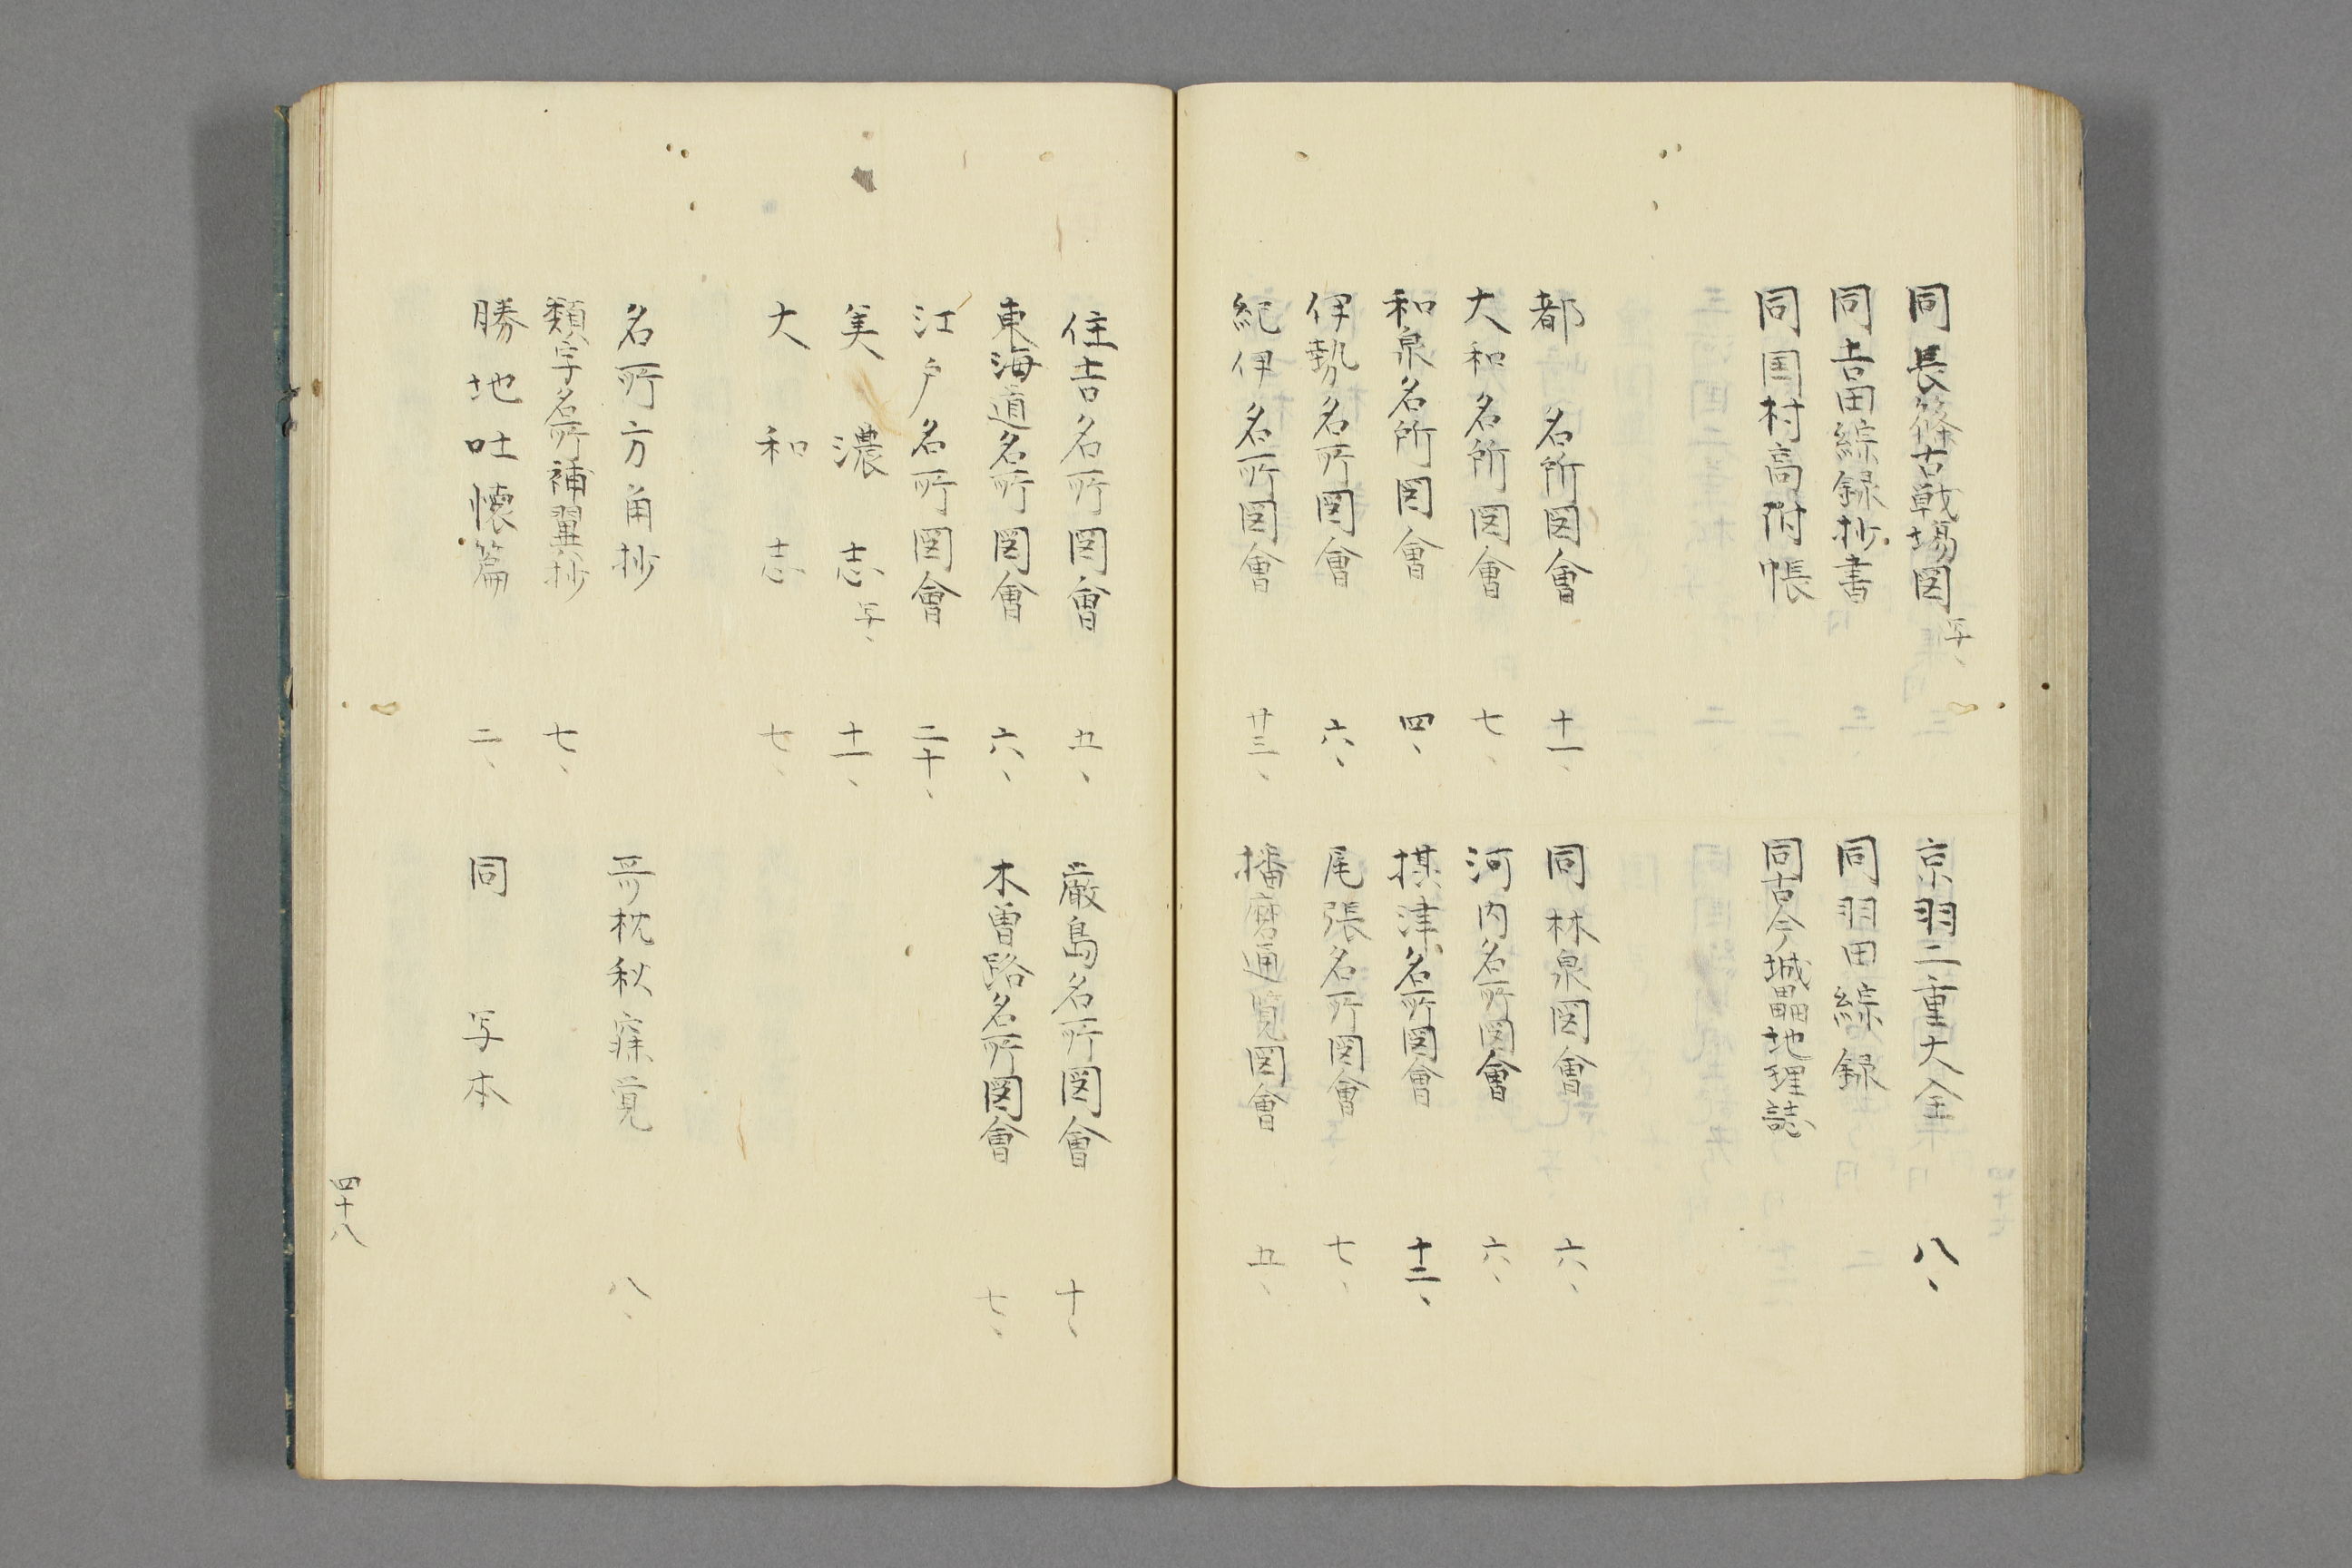 同長篠古戦場図 写、
京羽二重大全 八、
同吉田綜録抄書
同羽田綜録
同国村高附帳
同古今城畾地理誌
都名所図會 十一、
同林泉図會 六、
大和名所図會 七、
河内名所図會 六、
和泉名所図會 四、
摂津名所図會 十二、
伊勢名所図會 六、
尾張名所図會 七、
紀伊名所図會 廿三、
播磨通覧図會 五、
住吉名所図會 五、
厳島名所図會 十、
東海道名所図會 六、
木曽路名所図會 七、
江戸名所図會 二十、
美濃志 写、 十一、
大和志 七、
名所方角抄
哥枕秋寐覚 八、
類字名所補翼抄 七、
勝地吐懐篇 二、
同 写本
四十八